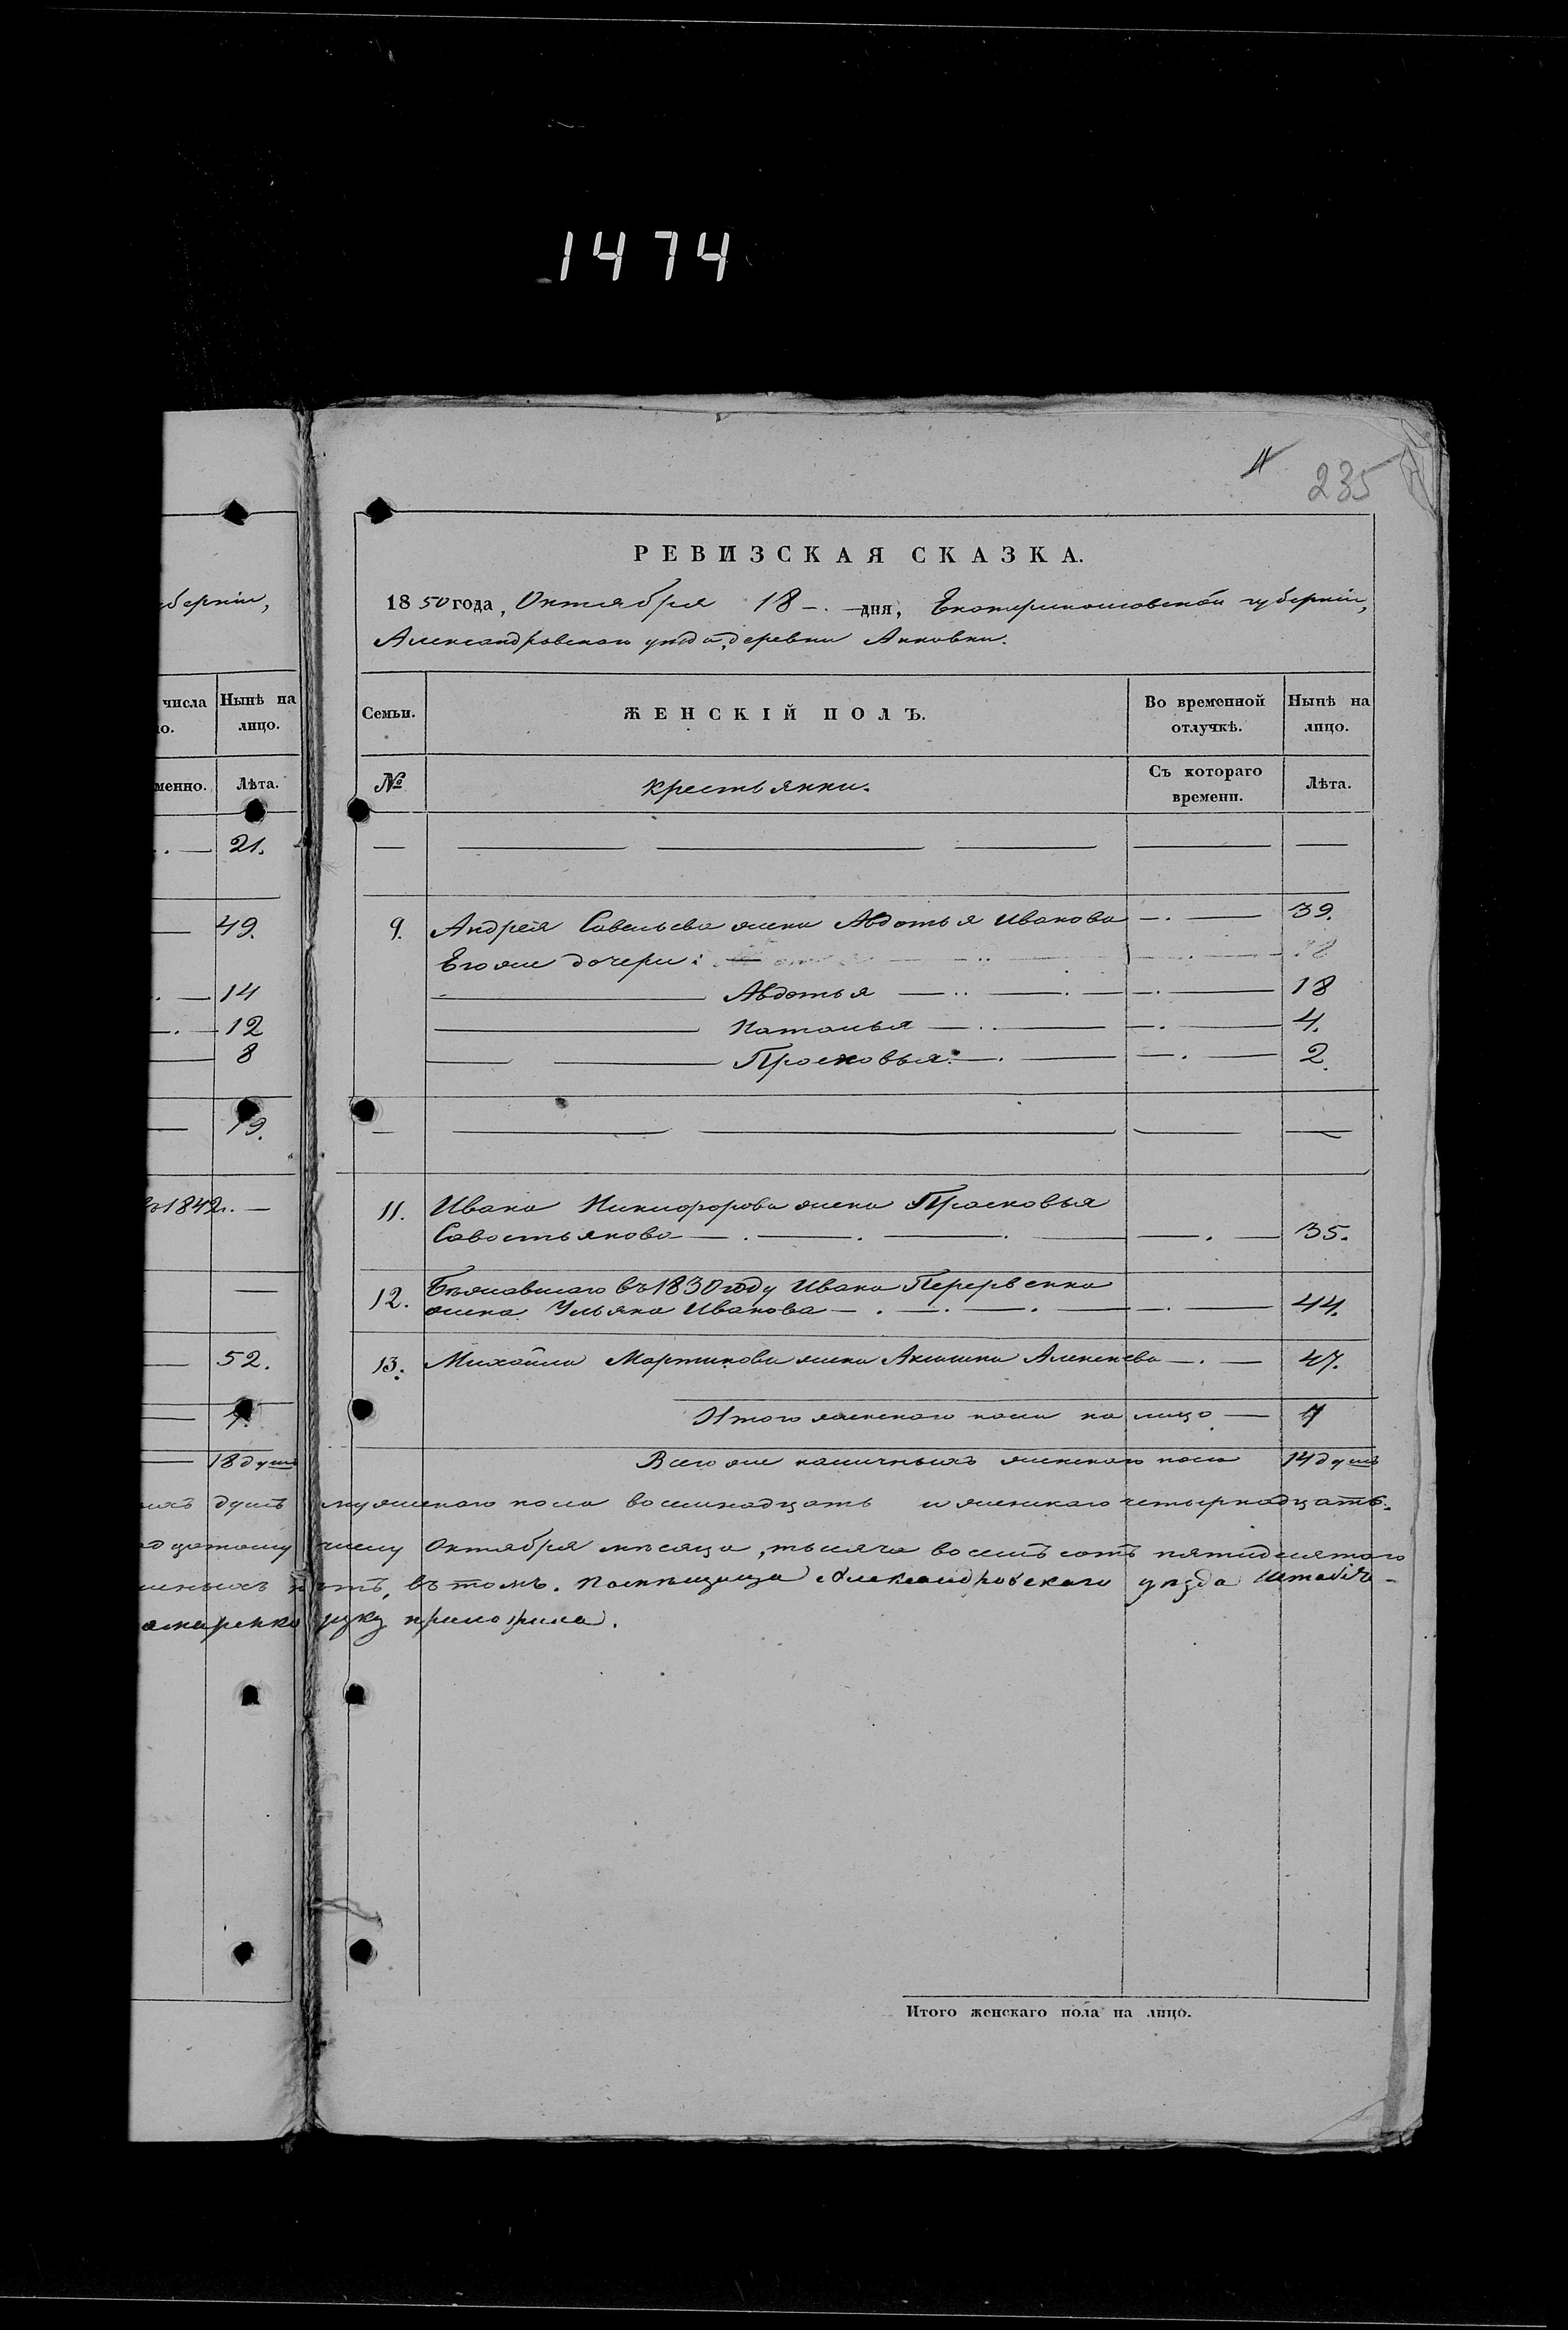 1474
4 235
РЕВИЗСКАЯ СКАЗКА.
1850 года, Октября 18 дня, Екатеринославской губерніи,
Александровскаго уѣзда, деревни Анновки.
уберніи,
числа
Нынѣ на лицо.
менно. Лѣта.
21.
49.
14
12
8
19.
1842.
52.
7.
18 душъ
Семьи. ЖЕНСКІЙ ПОЛЪ. Во временной отлучкѣ. Нынѣ на лицо.
№ Крестьянки. Съ котораго времени. Лѣта.
9. Андрея Савельева жена Авдотья Иванова 39.
Его же дочери:
Авдотья 18
Наталья 4.
Прасковья 2.
11. Ивана Никифорова жена Прасковья
Савостьянова 35.
12. Бѣжавшаго въ 1830 году Ивана Перервенка
жена Ульяна Иванова 44.
13. Михайла Мартинова жена Аксинья Алексѣева 47.
Итого женскаго пола на лицо 7
Всего же наличныхъ женскаго пола 14 душъ
душъ мужескаго пола восемнадцать и женскаго четырнадцать.
числу Октября мѣсяца, тысяча восемь сотъ пятидесятаго
лѣтъ, въ томъ. Помѣщица Александровскаго уѣзда Штабсъ-
руку приложила.
Итого женскаго пола на лицо.